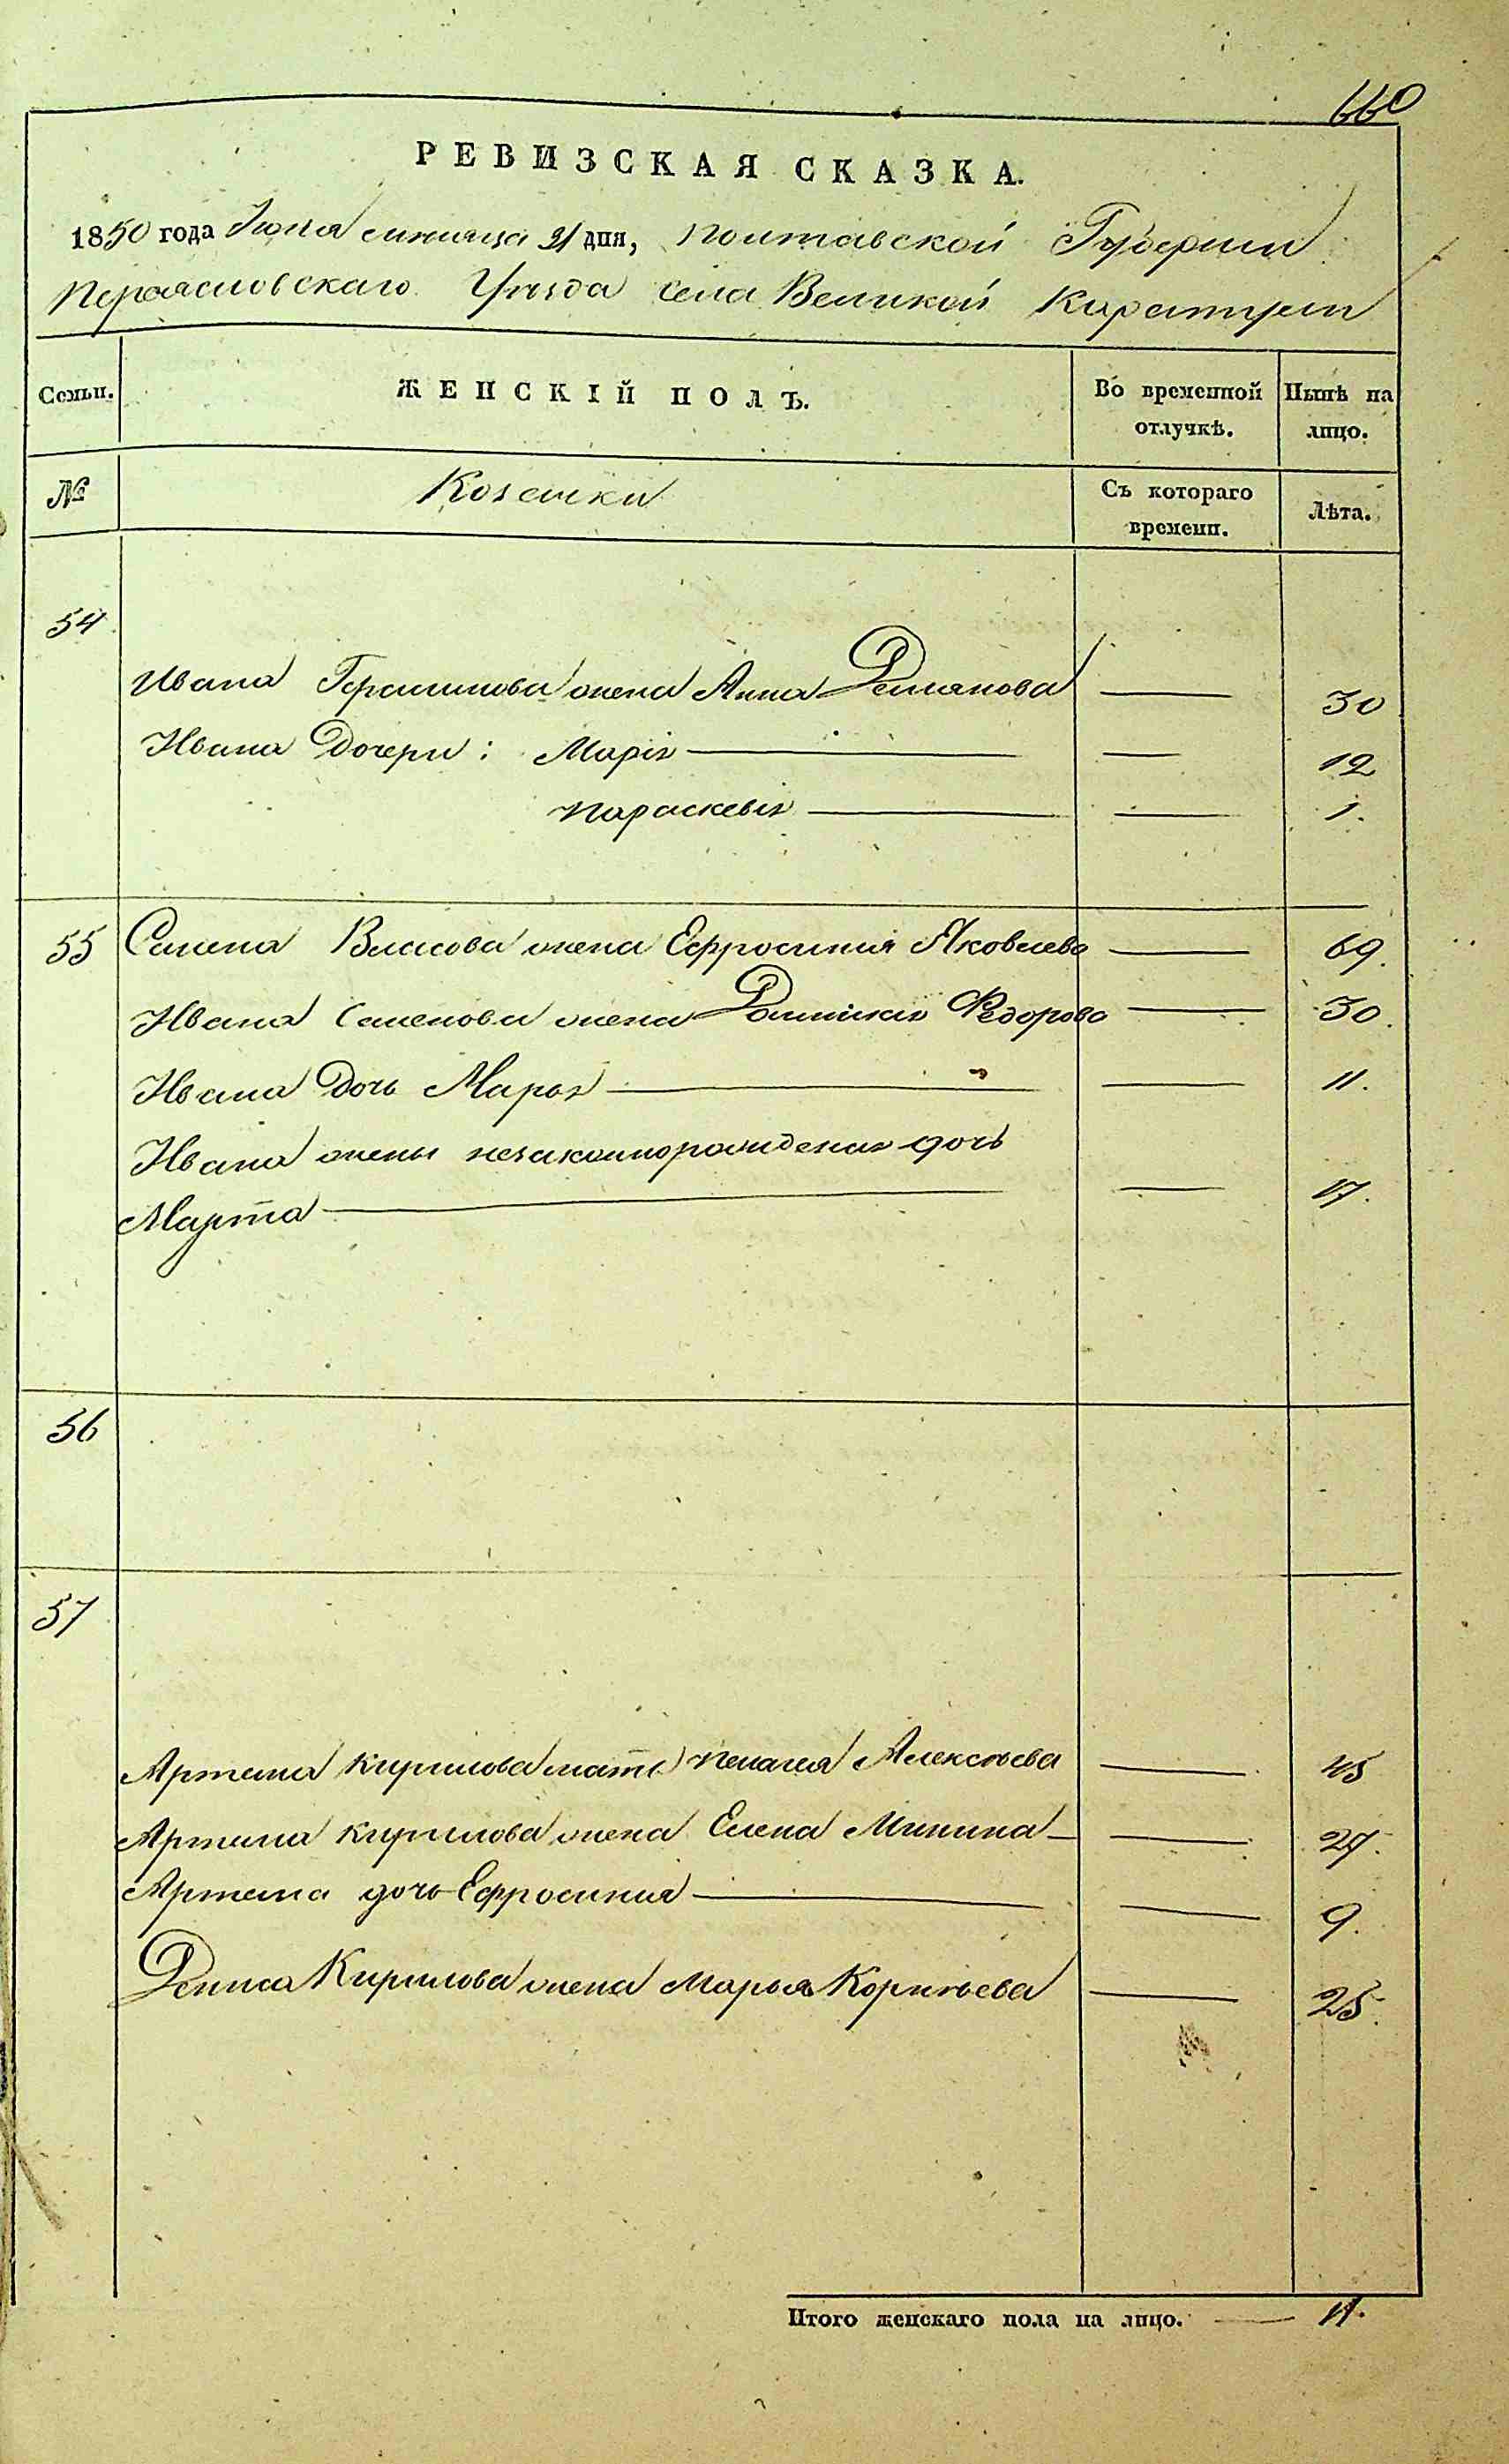 660
РЕВИЗСКАЯ СКАЗКА.
1850 года Іюля мѣсяца 21 дня, Полтавской Губерніи
Переясловскаго Уѣзда села Великой Каратули
Семьи. ЖЕНСКІЙ ПОЛЪ. Во временной отлучкѣ. Нынѣ на лицо.
№ Козачки Съ котораго времени. Лѣта.
54
Ивана Герасимова жена Анна Демьянова — 30
Ивана Дочери: Марія — — 12
Параскевія — — 1.
55 Семена Власова жена Ефросинія Яковлева — 69.
Ивана Семенова жена Домникія Федорова — 30.
Ивана Дочь Марья — — 11.
Ивана жены незаконнорожденая дочь
Марта — — 17.
56
57
Артема Кирилова мать Пелагея Алексѣева — 45
Артема Кирилова жена Елена Минина — — 27.
Артема дочь Ефросинія — — 9.
Дениса Кирилова жена Марья Корнѣева — 25.
Итого женскаго пола на лицо. — 11.